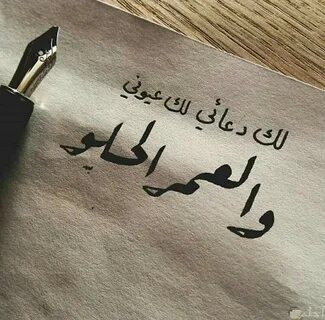 لك دعائي لك عيوني
والعمر الحليو